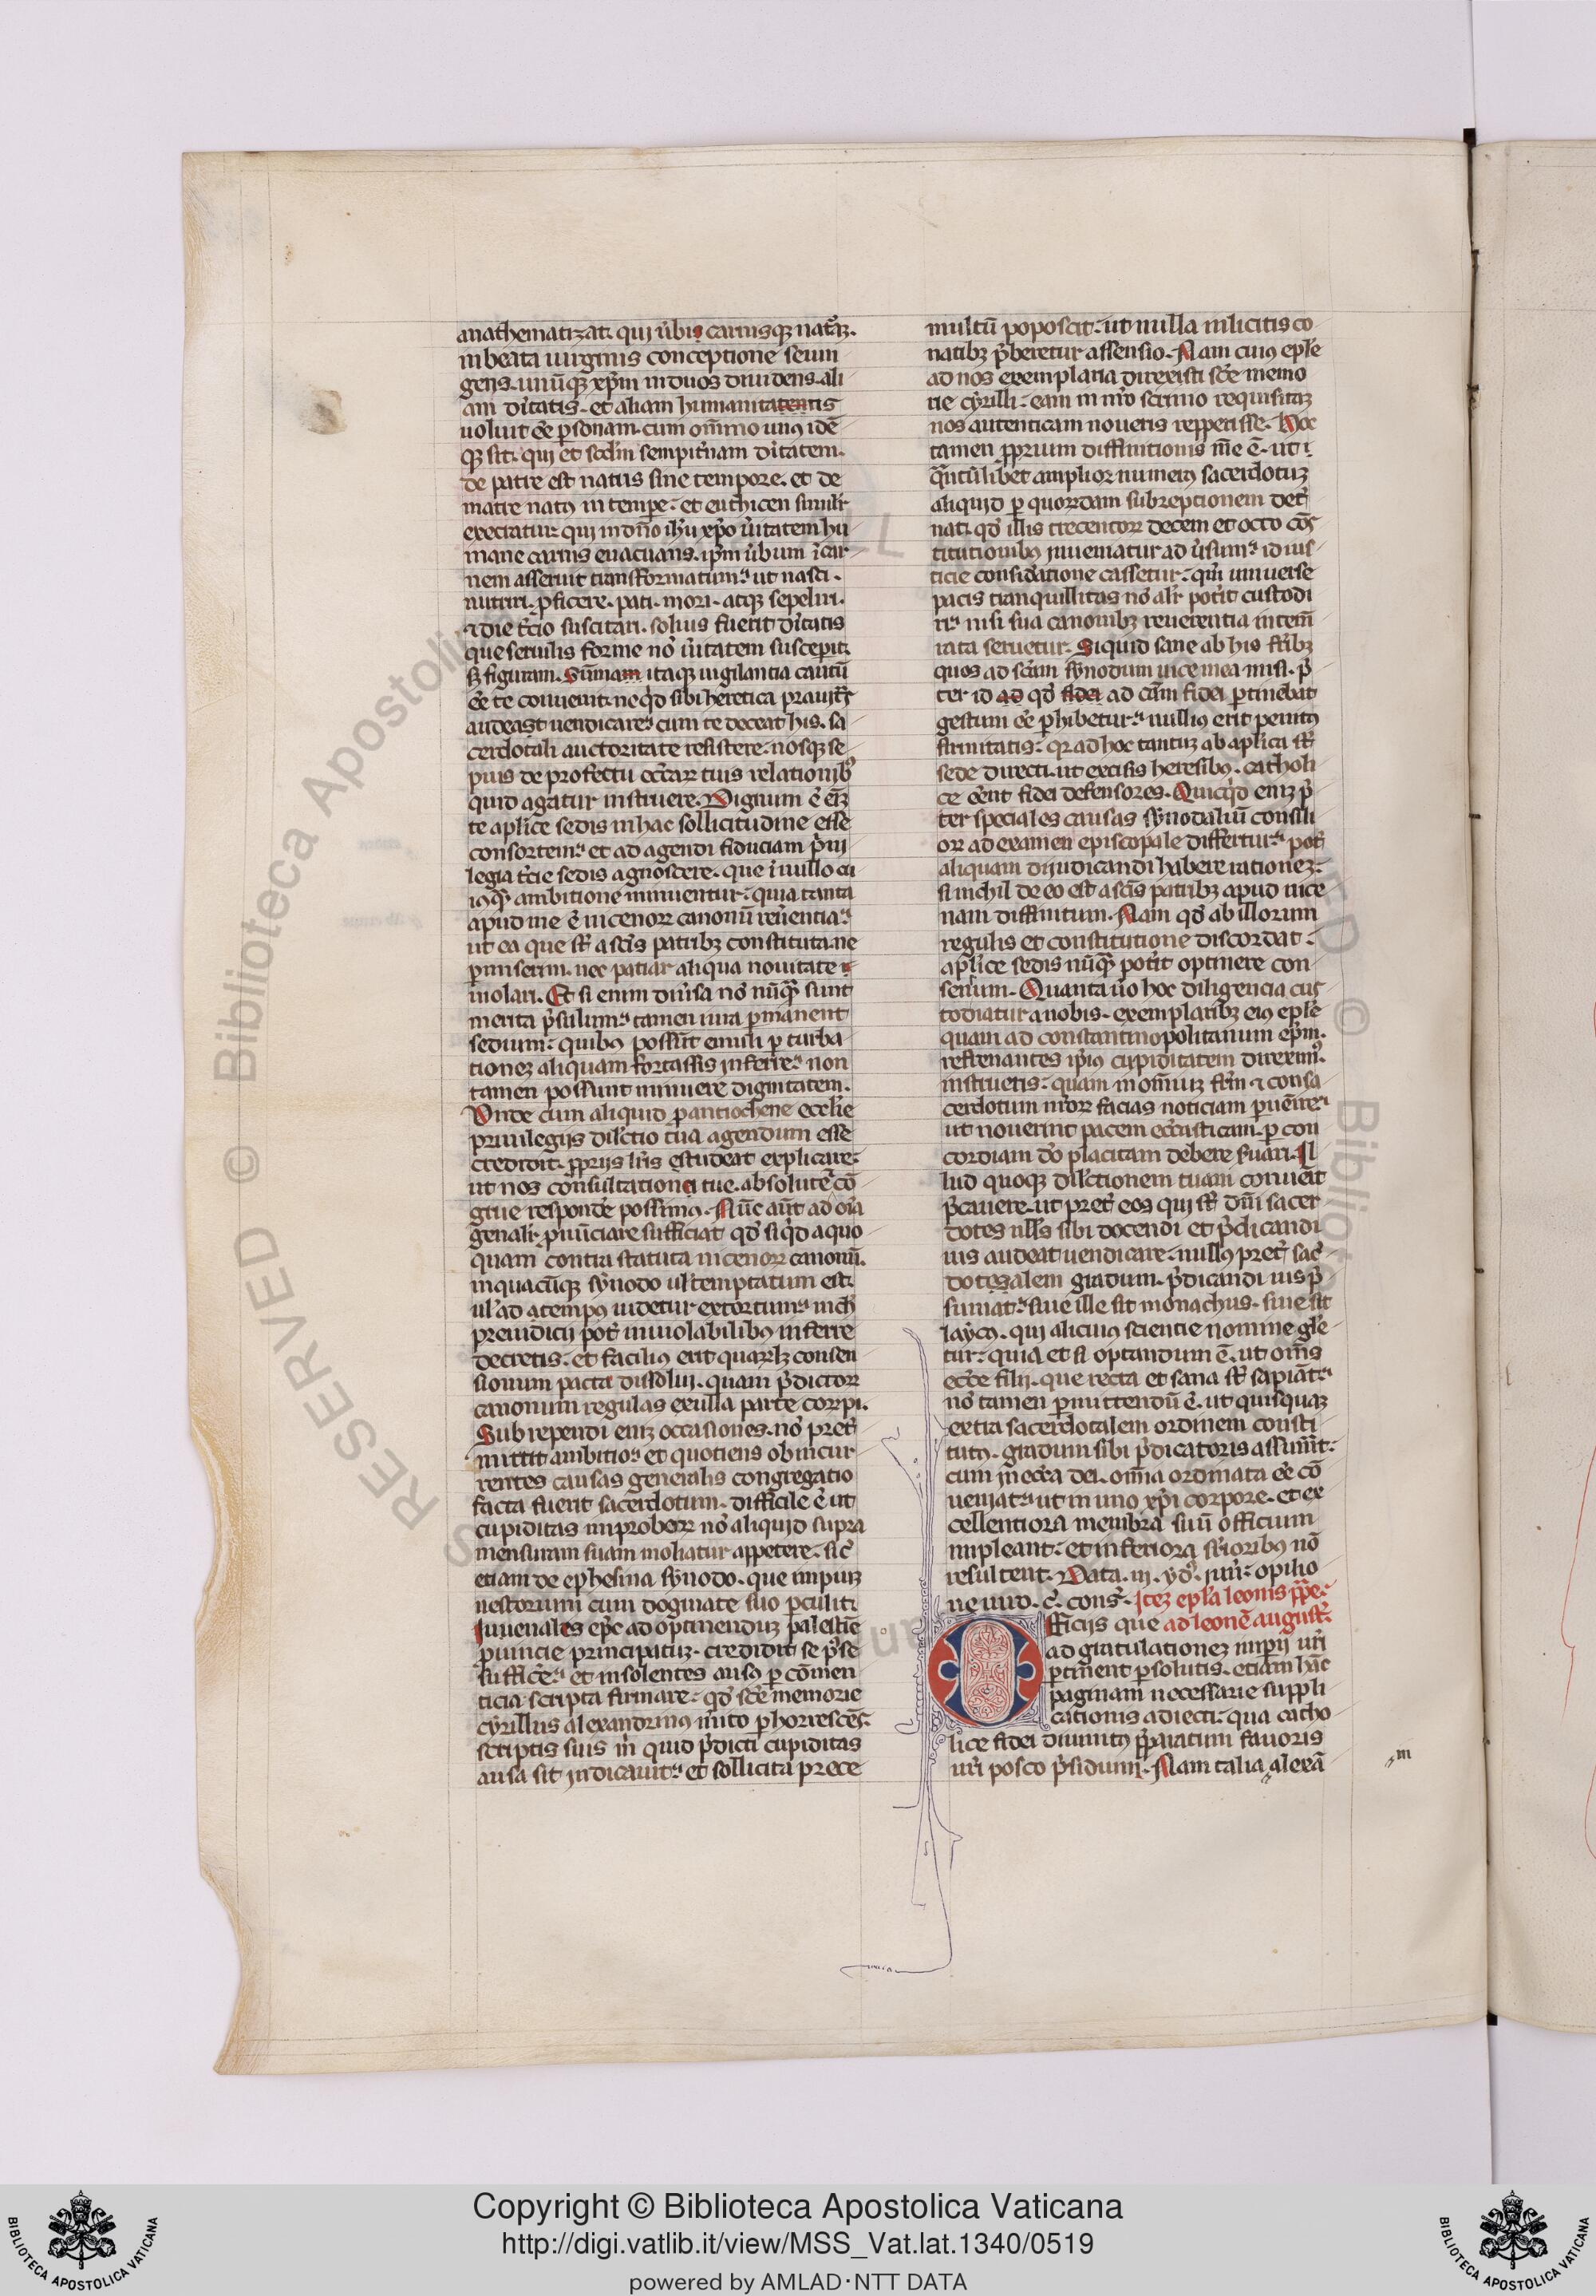 anathematizat. qui ủbis carnisq; natᷓꝝ.
in beata uirginis conceptione seiun
gens. unūq; xp̄m in duos diuidens. ali
am dı̉tatis. et aliam humanitatentis
uoluit eē ꝑsonam. cum om̄ino unꝰ idē
q; sit. qui et scdm̄ sempit̉nam dı̉tatem.
de patre est natus sine tempore. et de
matre natꝰ in tempe. et euthicen similr̉
execratur qui in dn̄o ih̄u xp̄o ủitatem hu
mane carnis euacuans. ip̄m ủbum ī car
nem asseruit transformatum. ut nasci.
nutriri. ꝓficere. pati. mori. atq; sepeliri.
⁊ die t̉cio suscitari. solius fuerit dı̉tatis
que seruilis forme nō ủitatem suscepit.
s; figuram. Sūmam itaq; uigilantia cautū
eē te conuenit. ne qͥd sibi heretica prauitᷤ
audeast uendicare. cum te deceat his. sa
cerdotali auctoritate resistere. nosq; se
pius de profectu eccl̓iaꝝ tuis relationibꝰ
quid agatur instruere. Dignum ē eīz
te aplı̓ce sedis in hac sollicitudine esse
consortem. et ad agendi fiduciam p̉ui
legia t̉cie sedis agnoscere. que ī nullo cu
iusq᷒ ambitione minuentur. quia tanta
apud me ē nicenoꝝ canonū reuẻentia.
ut ea que st̄ a sc̄is patribꝫ constituta. ne
ꝑmiserim. nec patiar aliqua nouitate
uiolari. Et si enim diủsa nō nūq᷒ sunt
merita p̉sulum. tamen iura ꝑmanent
sedium. quibꝰ possūt emuli ꝑ turba
tionez aliquam fortassis inferre. non
tamen possunt minuere dignitatem.
Unde cum aliquid ꝓ antiochene eccl̓ie
priuilegijs dil̓ctio tua agendum esse
crediderit. ꝓprijs lr̄is studeat explicare.
ut nos consultationi tue. absolute ⁊ cō
grue respondẻ possimꝰ. Nūc aūt ad oı̄a
genalr̉ ꝓnūciare sufficiat qd̓ si qͥd a quo
quam contra statuta nicenoꝝ canonū.
in quacūq; synodo ul̓ temptatum est.
ul̓ ad a tempꝰ uidetur extortum. nich̓
preiudicij pot̉ inuiolabilibꝰ inferre
decretis. et facilius erit quaꝝlꝫ consen
sionum pacta dissolui. quam p̉dictoꝝ
canonum regulas ex ulla parte corrı̄pi.
Subrependi eniz occasiones. nō pret̉
mittit ambitio. et quotiens ob incur
rentes causas generalis congregatio
facta fuerit sacerdotum. difficile ē ut
cupiditas improboꝝ nō aliquid supra
mensuram suam moliatur appetere. sic̓
etiam de ephesina synodo. que impiuz
nestorium cum dogmate suo ꝑculit.
Iuuenales ep̄c ad optinenduz palestīe
ꝓuincie principatuz. credidit se p̉se
suffice. et insolentes ausꝰ ꝑ cōmen
ticia scripta firmare. qd̓ sc̄e memorie
cyrillus alexandrinꝰ m̉ito ꝑhorrescēs.
scriptis suis m̉ quid p̉dicti cupiditas
ausa sit indicauit. et sollicita prece
multū poposcit. ut nulla inlicitis co
natibꝫ p̉beretur assensio. Nam cuiꝰ epl̓e
ad nos exemplaria direxisti sc̄e memo
rie cyrilli. eam in nr̄o scrinio requisitaz
nos autenticam noueris repperisse. Hoc
tamen ꝓprium diffinitionis m̄e ē. ut i
q᷒ntūlibet amplior numerus sacerdotuz
aliquid ꝑ quorūdam subreptionem det̉
nat. qd̓ illis trecentoꝝ decem et octo cōs
titutionibꝰ inueniatur adủsum. id ius
ticie considẻatione cassetur. qm̄ uniuerse
pacis tranquillitas nō alr̉ potı̉t custodi
ri. nisi sua canonibꝫ reuerentia intem̄
rata seruetur. Siquid sane ab his fr̄ibꝫ
quos ad sc̄am synodum uice mea misi. p̉
ter id ad qd̓ fidei ad cām fidei ꝑtinebat
gestum eē ꝑhibetur. nulliꝰ erit penitꝰ
firmitatis. qꝛ ad hoc tantuz ab aplı̓ca st̄
sede directi. ut excisis heresibꝰ. catholi
ce eēnt fidei defensores. Quicqͥd eniz p̉
ter speciales causas synodaliū consili
oꝝ ad examen episcopale differtur. pot̉
aliquam dijudicandi habere rationez.
si nichil de eo est a sc̄is patribꝫ apud nice
nam diffinitum. Nam qd̓ ab illorum
regulis et constitutione discordat.
aplı̓ce sedis nūq᷒ potı̉t optinere con
sensum. Quanta ủo hoc diligencia cus
todiatur a nobis. exemplaribꝫ eiꝰ epl̓e
quam ad constantinopolitanum ep̄m.
refrenantes ip̄ius cupiditatem direximꝰ.
instrueris. quam in om̄iuz fr̄m ⁊ consa
cerdotum nr̄oꝝ facias noticiam ꝑuēire.
ut nouerint pacem eccl̓iasticam. ꝑ con
cordiam dō placitam debere s̉uari. Il
lud quoq; dil̓ctionem tuam conuēit
p̉cauere. ut pret̉ eos qui st̄ dn̄i sacer
dotes nll̓s sibi docendi et p̉dicandi
ius audeat uendicare. nullꝰ pret̉ sac̉
dotesalem gradum. p̉dicandi ius p̉
sumat. siue ille sit monachus. siue sit
laycꝰ. qui alicuius scientie nomine gl̓e
tur. quia et si optandum ē. ut om̄s
eccl̓e filij. que recta et sana st̄ sapiāt.
nō tamen ꝑmittendū ē. ut quisquaz
extra sacerdotalem ordinem consti
tutꝰ. gradum sibi p̉dicatoris assumat.
cum in eccl̓ia dei. om̄ia ordinata eē cō
ueniat. ut in uno xp̄i corpore. et ex
cellentiora membra suū officium
impleant. et inferiora sup̉ioribꝰ nō
resultent. Data. iij. ydꝰ. iun̄. opilio
ne uiro. c̄. cons̄. Itez epl̓a leonis ppe.
Officijs que ad leonē august̄.
ad gratulationez imperij ur̄i
ꝑtinent ꝑsolutis. etiam hāc
paginam necessarie suppli
cationis adieci. qua catho
lice fidei diuinitꝰ p̉paratum fauoris
ur̄i posco p̉sidium. Nam talia alexā
m
Copyright © Biblioteca Apostolica Vaticana
http://digi.vatlib.it/view/MSS_Vat.lat.1340/0519
powered by AMLAD·NTT DATA